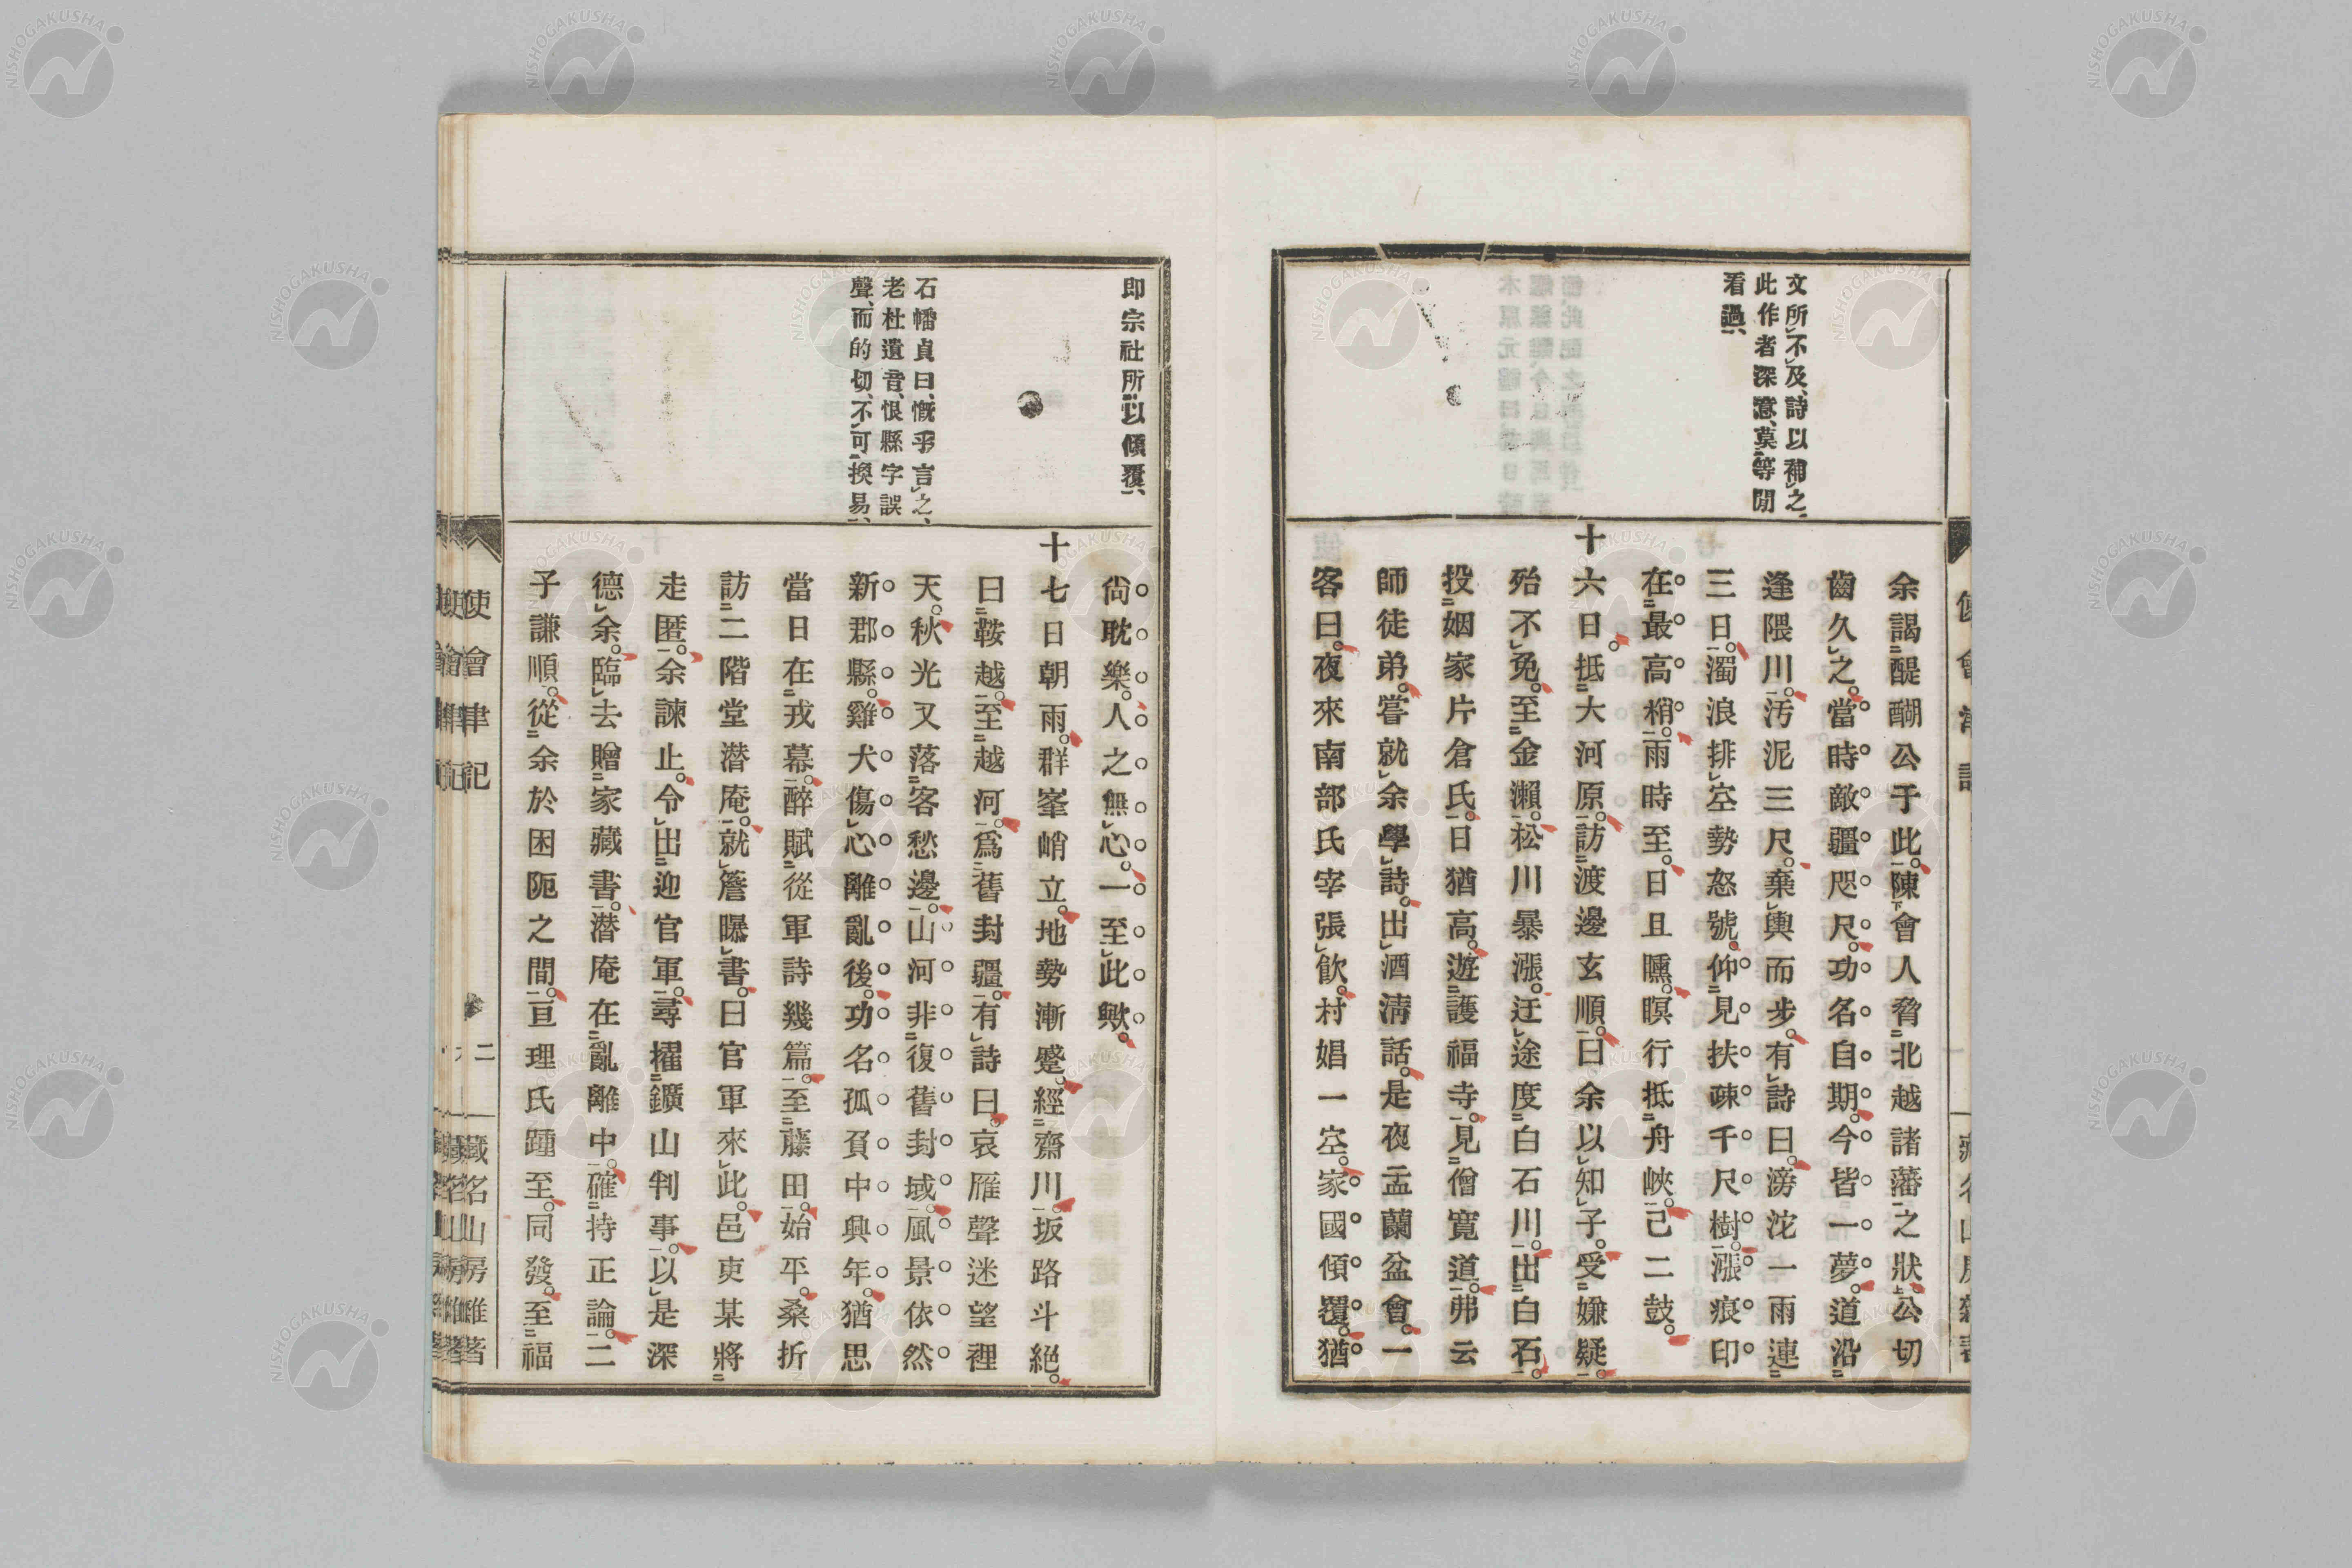 文所不及、詩以補之、
此作者深意、莫等閒
看過、
余謁醍醐公于此。陳會人脅北越諸藩之狀。公切
齒久之。當時敵疆咫尺。功名自期。今皆一夢。道沿
逢隈川。汚泥三尺。棄輿而步。有詩曰。滂沱一雨連
三日。濁浪排空勢怒號。仰見扶疎千尺樹。漲痕印
在最高梢。雨時至。日且曛。暝行抵舟峽。己二鼓。
十六日。抵大河原。訪渡邊玄順。曰余以知子。受嫌疑。
殆不免。至金瀨。松川暴漲。迂途度白石川。出白石。
投姻家片倉氏。日猶高。遊護福寺。見僧寬道。弗云
師徒弟。嘗就余學詩。出酒淸話。是夜盂蘭盆會。一
客曰。夜來南部氏宰張飮。村娼一空。家國傾覆。猶
使會津記
藏名山房雜著
即宗社所以傾覆、
石幡貞曰、慨乎言之、
老杜遺音、恨縣字誤
聲、而的切、不可換易、
尙耽樂。人之無心。一至此歟。
十七日朝雨。群峯峭立。地勢漸蹙。經齋川。坂路斗絕。
曰鞍越。至越河。爲舊封疆。有詩曰。哀雁聲迷望裡
天。秋光又落客愁邊。山河非復舊封域。風景依然
新郡縣。雞犬傷心離亂後。功名孤負中興年。猶思
當日在戎幕。醉賦從軍詩幾篇。至藤田。始平。桑折
訪二階堂潛庵。就簷曝書。曰官軍來此。邑吏某將
走匿。余諫止。令出迎官軍。尋擢鑛山判事。以是深
德余。臨去贈家藏書。潛庵在亂離中。確持正論。二
子謙順。從余於困阨之間。亘理氏踵至。同發。至福
使會津記
二
藏名山房雜著